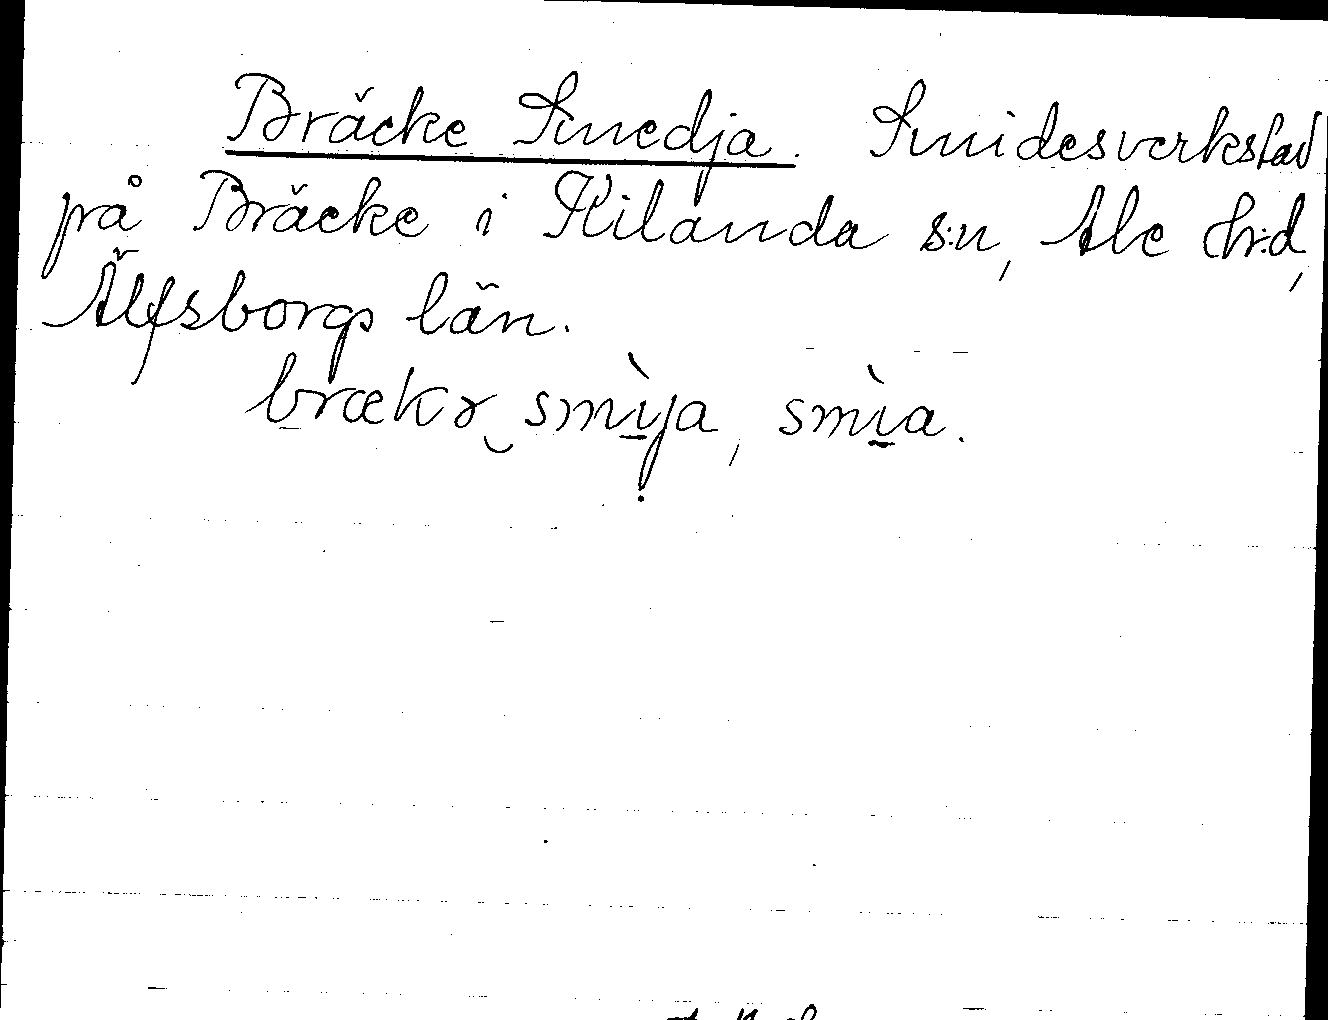 Bräcke Smedja. Smidesverkstad
på Bräcke i Kilanda s:n, Ale h:d,
Älfsborgs län.
brækɤ‿smìja, smìa.